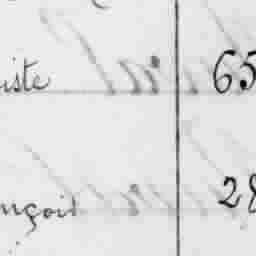 iste 65
nçois 28